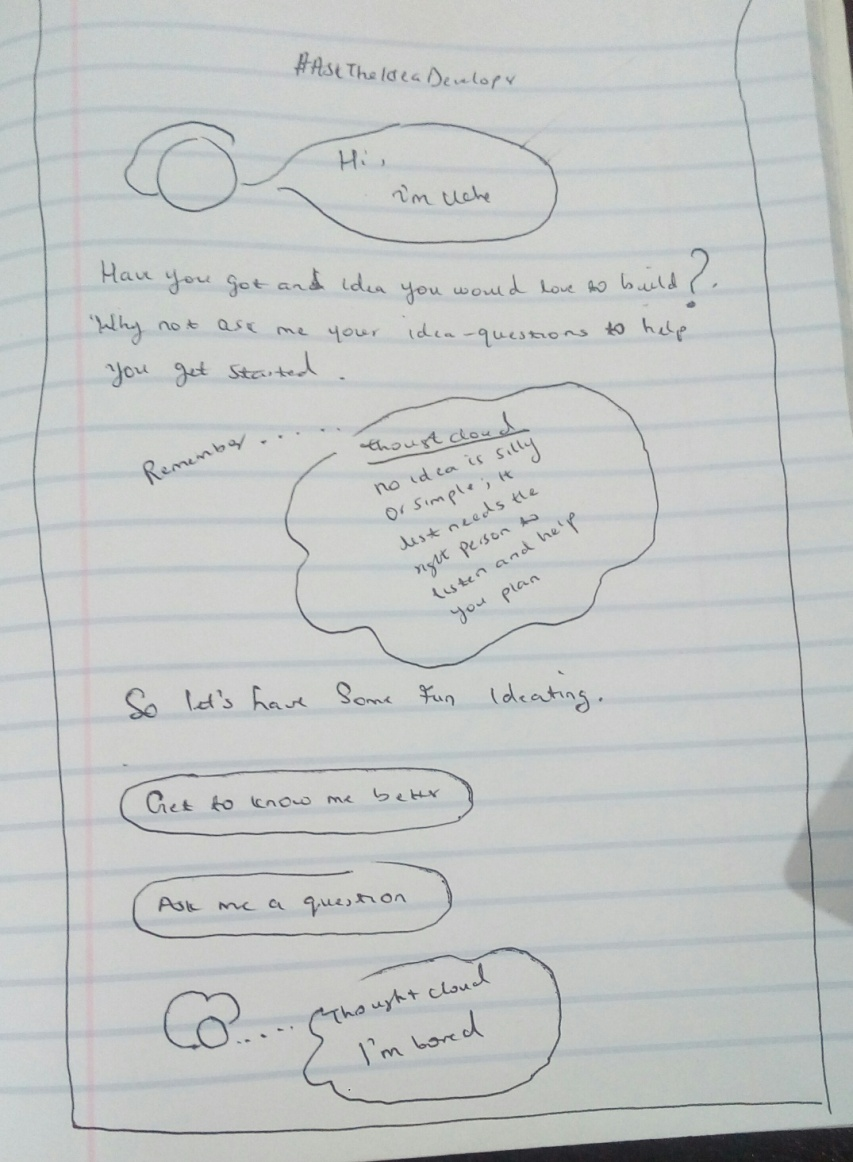 #AskTheIdeaDevelopr
Hi,
i'm Uche
Have you got and idea you would love to build?.
Why not ask me your idea-questions to help
you get started.
Remember......
thoust cloud
no idea is silly
or simple; it
just needs the
right person to
listen and help
you plan
So let's have some fun Ideating.
Get to know me better
Ask me a question
.....
Thought cloud
I'm bored